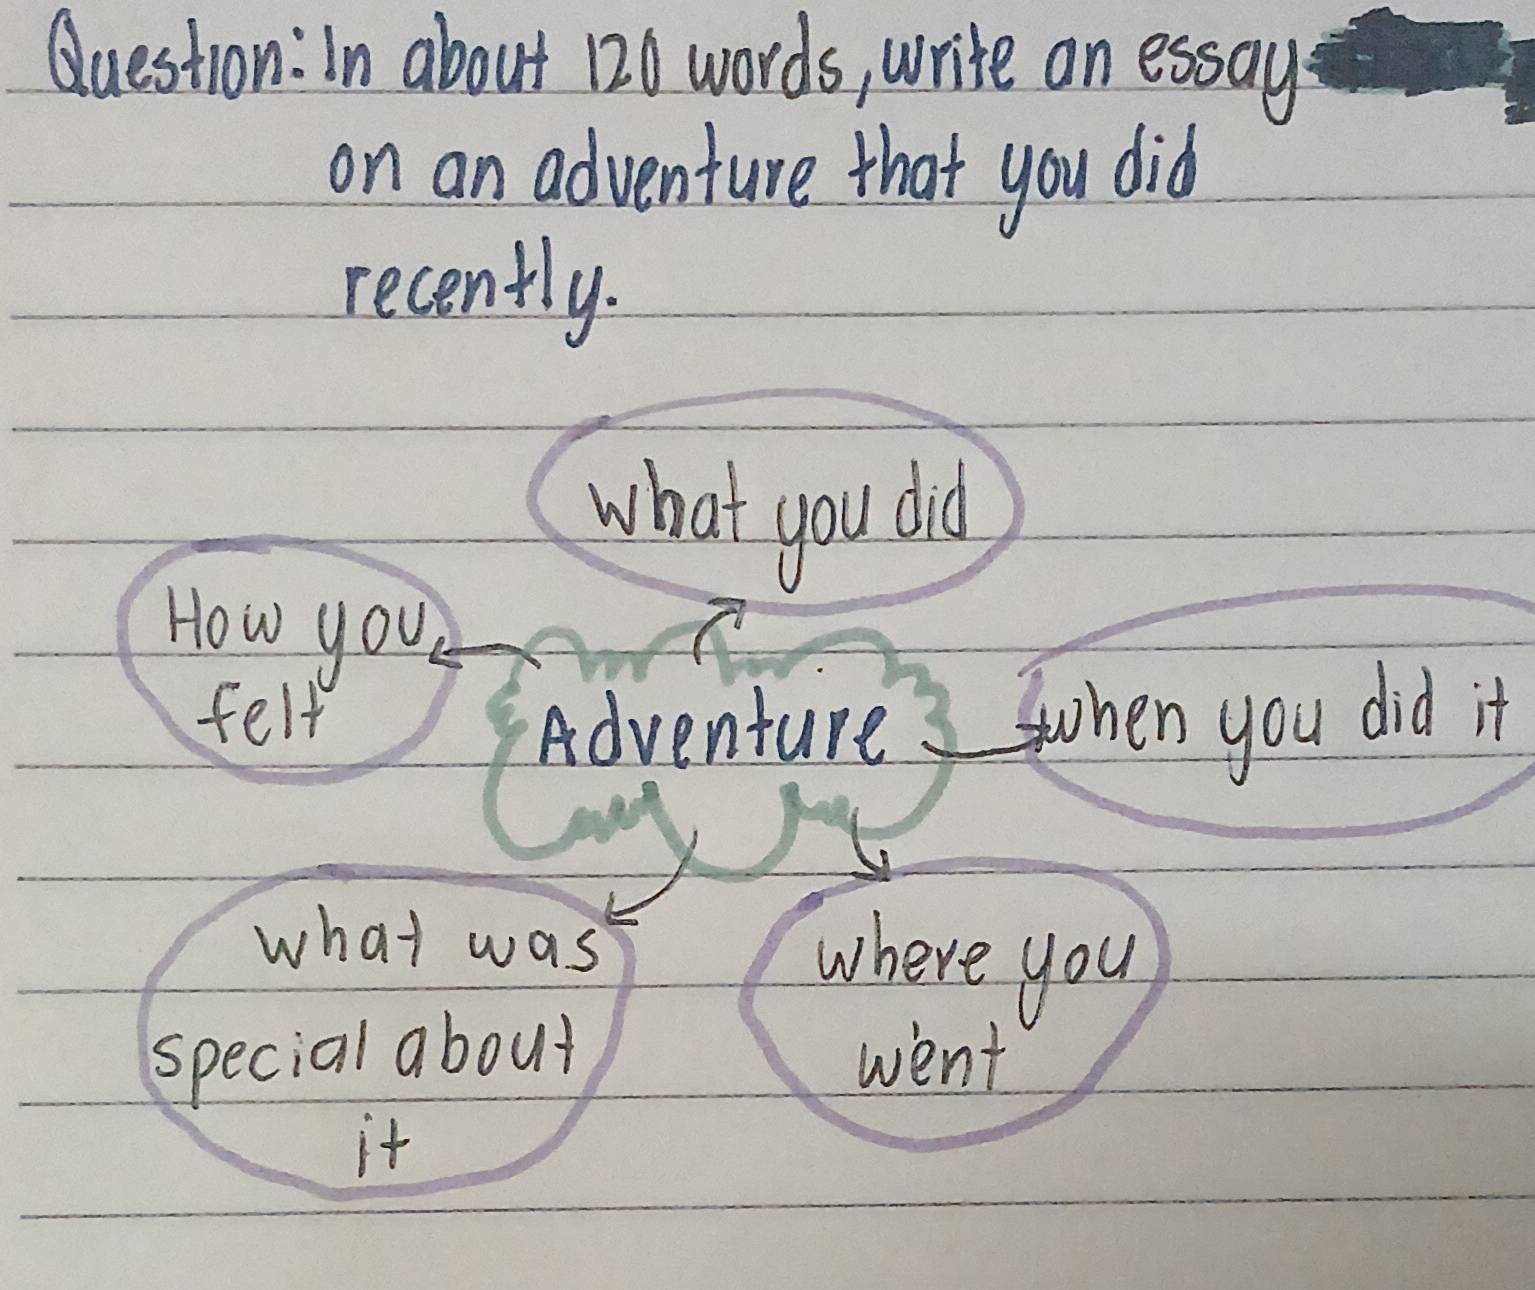 Question: In about 120 words, write an essay
on an adventure that you did
recently.
what you did
How you
felt
Adventure
when you did it
what was
special about
it
where you
went